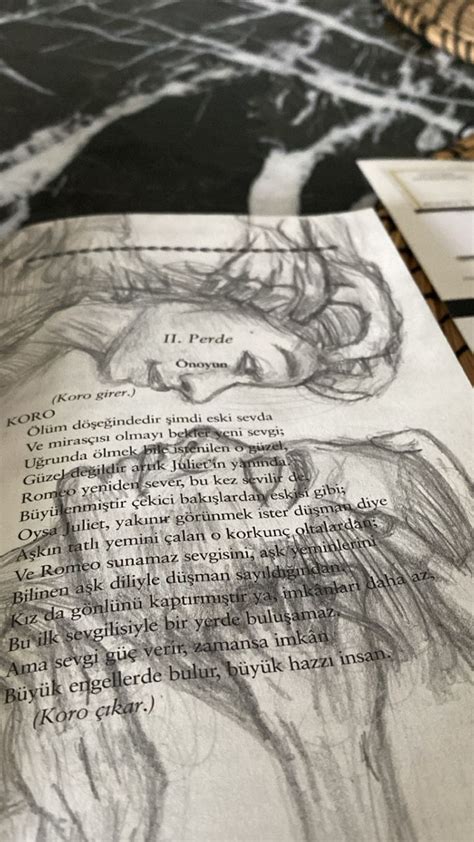 II. Perde
Önoyun
(Koro girer.)
KORO
Ölüm döşeğindedir şimdi eski sevda
Ve mirasçısı olmayı bekler yeni sevgi;
Uğrunda ölmek bile istenilen o güzel,
Güzel değildir artık Juliet'in yanında.
Romeo yeniden sever, bu kez sevilir de,
Büyülenmiştir çekici bakışlardan eskisi gibi;
Oysa Juliet, yakınır görünmek ister düşman diye
Aşkın tatlı yemini çalan o korkunç oltalardan;
Ve Romeo sunamaz sevgisini, aşk yeminlerini
Bilinen aşk diliyle düşman sayıldığından.
Kız da gönlünü kaptırmıştır ya, imkânları daha az,
Bu ilk sevgilisiyle bir yerde buluşamaz.
Ama sevgi güç verir, zamansa imkân
Büyük engellerde bulur, büyük hazzı insan.
(Koro çıkar.)